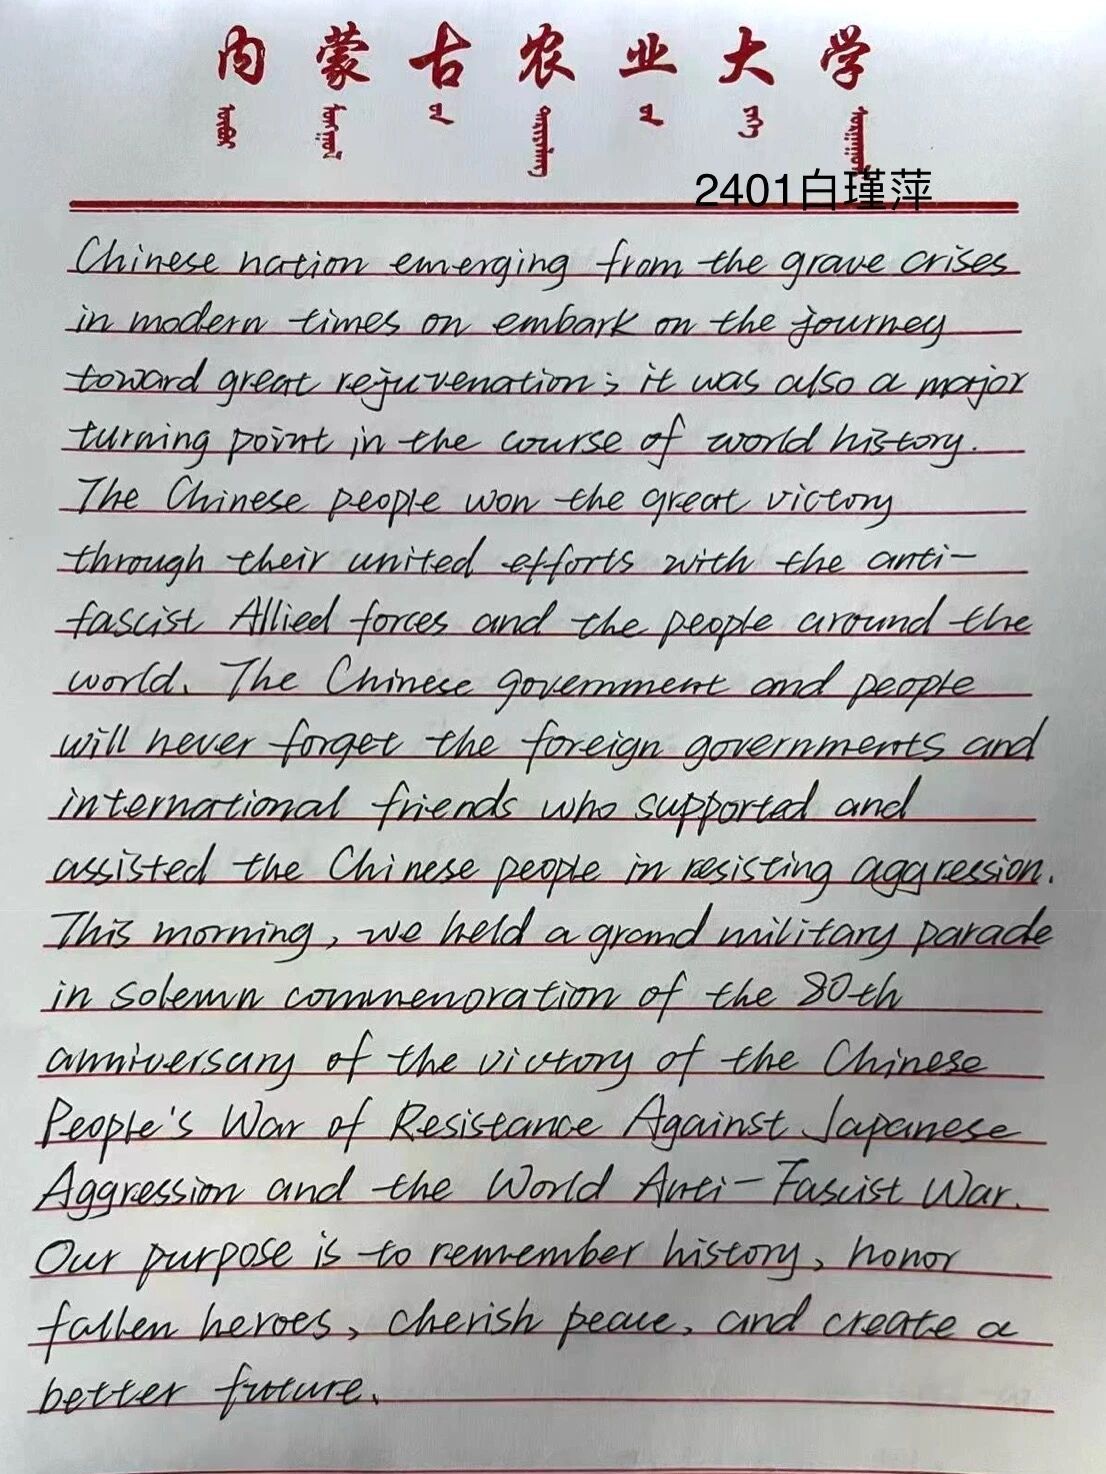 内蒙古农业大学
2401白瑾萍
Chinese nation emerging from the grave crises
in modern times on embark on the journey
toward great rejuvenation; it was also a major
turning point in the course of world history.
The Chinese people won the great victory
through their united efforts with the anti-
fascist Allied forces and the people around the
world. The Chinese government and people
will never forget the foreign governments and
international friends who supported and
assisted the Chinese people in resisting aggression.
This morning, we held a grand military parade
in solemn commenoration of the 80th
anniversary of the victory of the Chinese
People's War of Resistance Against Japanese
Aggression and the World Anti-Fascist War.
Our purpose is to remember history, honor
fallen heroes, cherish peace, and create a
better future.